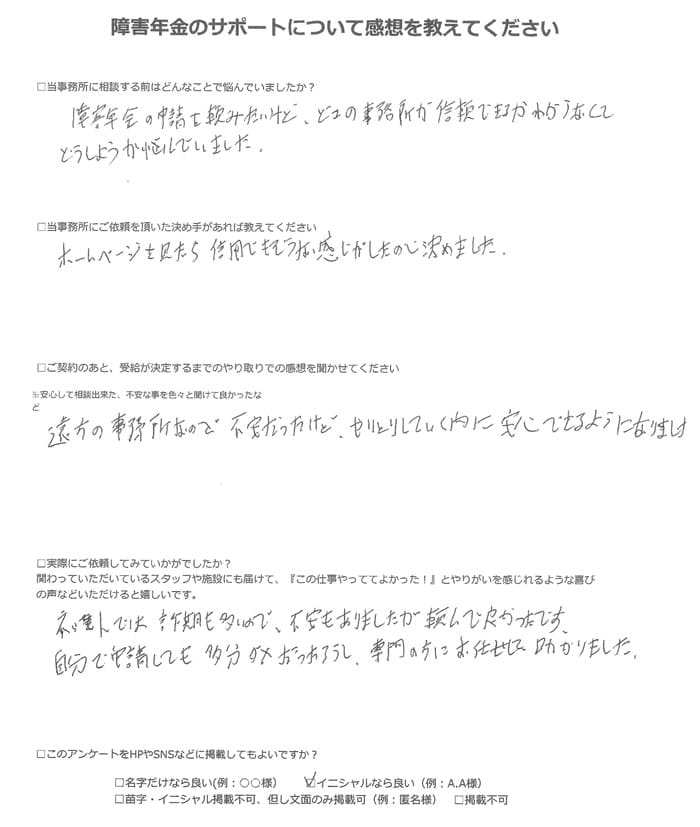 障害年金のサポートについて感想を教えてください
□当事務所に相談する前はどんなことで悩んでいましたか？
障害年金の申請を頼みたいけど、どこの事務所が信頼できるかわからなくて
どうしようか悩んでいました。
□当事務所にご依頼を頂いた決め手があれば教えてください
ホームページを見たら信用できそうな感じがしたので決めました。
□ご契約のあと、受給が決定するまでのやり取りでの感想を聞かせてください
※安心して相談出来た、不安な事を色々と聞けて良かったな
ど
遠方の事務所なので不安だったけど、やりとりしていく内に安心できるようになりまし
□実際にご依頼してみていかがでしたか？
関わっていただいているスタッフや施設にも届けて、『この仕事やっててよかった！』とやりがいを感じれるような喜び
の声などいただけると嬉しいです。
では詐欺も多いので、不安もありましたが頼んで良かったです。
自分で申請しても多分ダメだっただろうし、専門の方にお任せして助かりました。
□このアンケートをHPやSNSなどに掲載してもよいですか？
□名字だけなら良い(例：○○様） ☑イニシャルなら良い（例：A.A様）
□苗字・イニシャル掲載不可、但し文面のみ掲載可（例：匿名様） □掲載不可